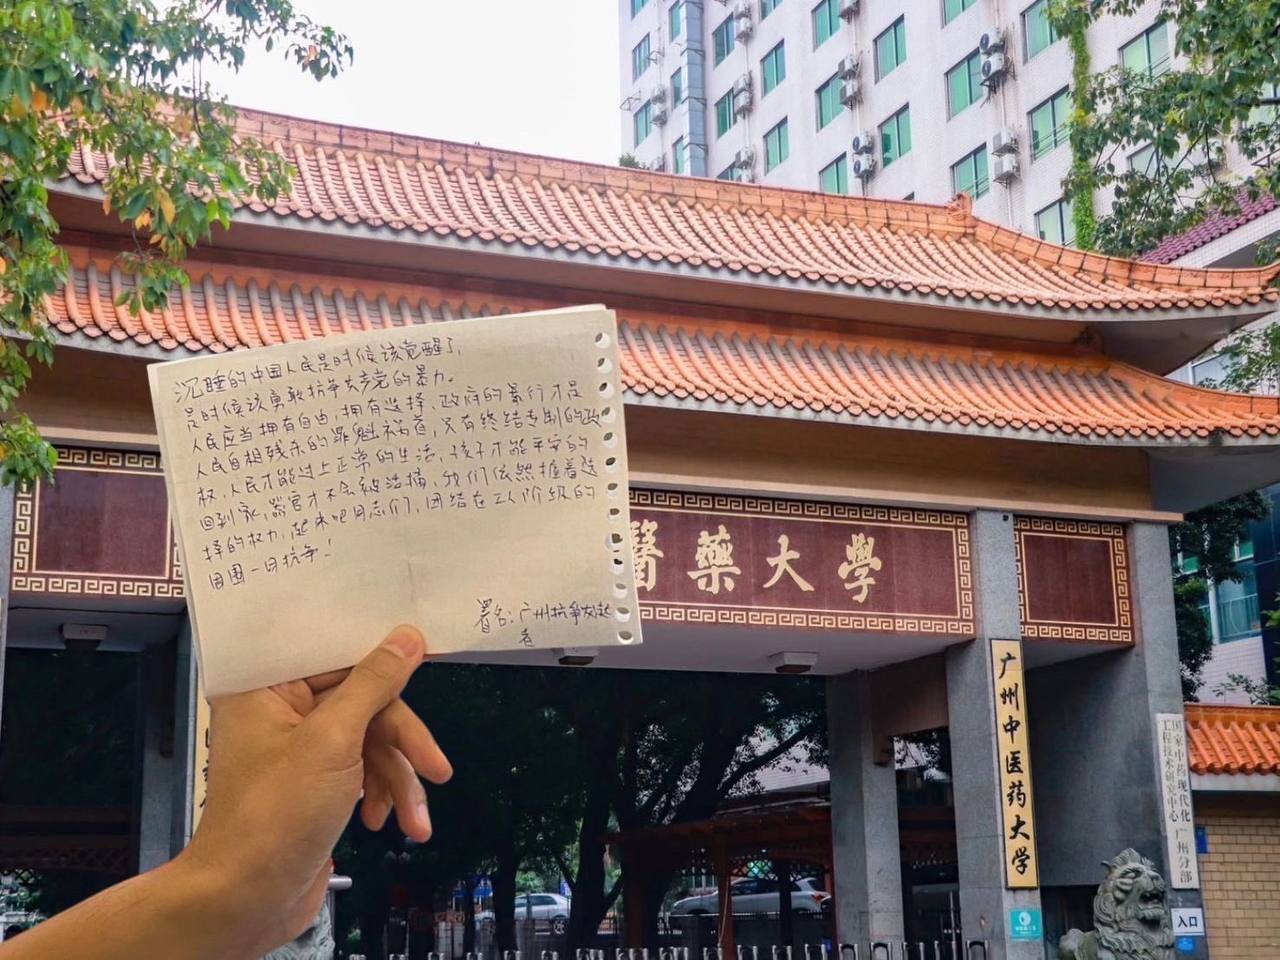 沉睡的中国人民是时候该觉醒了，
是时候该勇敢抗争共产党的暴力。
人民应当拥有自由，拥有选择，政府的暴行才是
人民自相残杀的罪魁祸首，只有终结专制的政
权，人民才能过上正常的生活，孩子才能平安的
回到家，器官才不会被活摘，我们依然握着选
择的权力，起来吧同志们，团结在工人阶级的
周围一同抗争！
署名：广州抗争发起
者
醫藥大學
广州中医药大学
国家中药现代化
工程技术研究中心 广州分部
入口